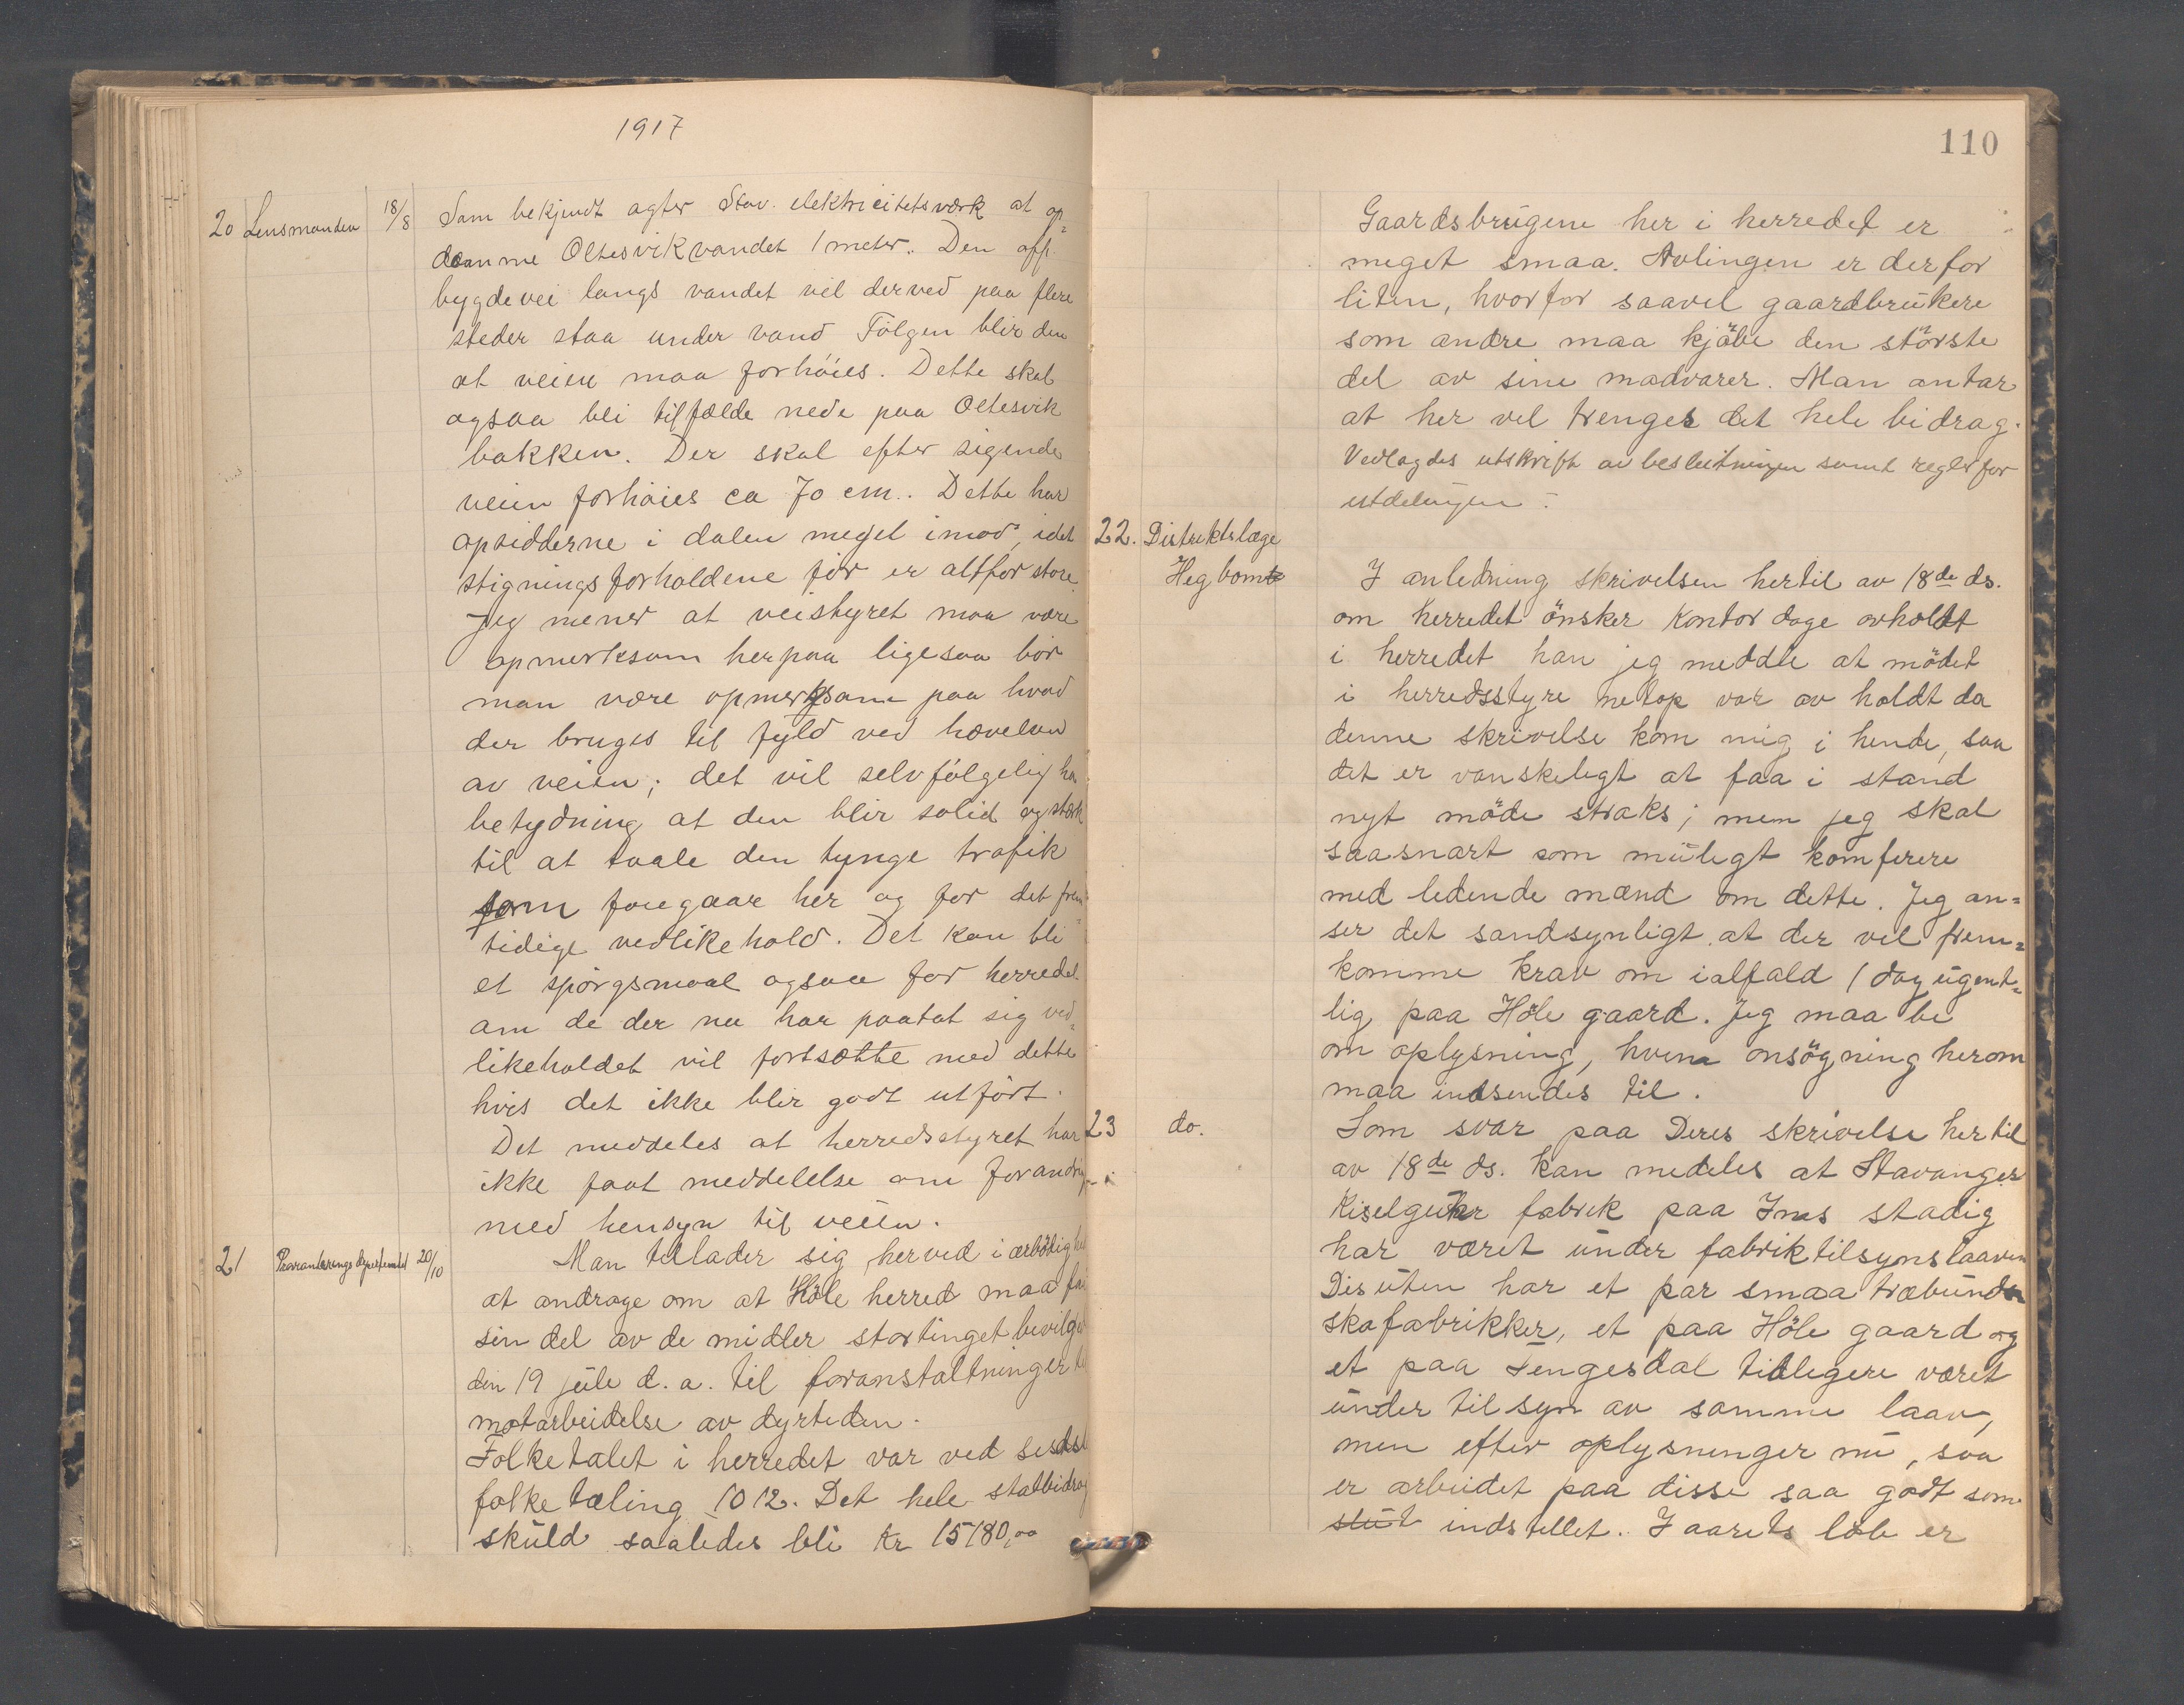 1917
20 Lensmanden 18/8 Som bekjendt agter Stav. elektricitetsværk at op=
dæmme Oltesvikvandet 1 meter. Den off.
bygdevei langs vandet vil derved paa flere
steder staa under vand Følgen blir den
at veien maa forhöies. Dette skal
ogsaa bli tilfælde nede paa Oltesvik
bakken. Der skal efter sigende
veien forhöies ca 70 cm.. Dette har
opsidderne i dalen meget imod, idet
stigningsforholdene för er altfor store
Jeg mener at veistyret maa være
opmerksom herpaa ligesaa bör
man være opmerksom paa hvad
der bruges til fyld ved hævelsen
av veien; det vil selvfölgelig ha
betydning at den blir solid og sterk
til at taale den tynge trafik
som foregaar her og for det frem=
tidige vedlikehold. Det kan bli
et spörgsmaal ogsaa for herredet
om de der nu har paatat sig ved=
likeholdet vil fortsætte med dette
hvis det ikke blir godt utfört.
Det meddeles at herredsstyret har
ikke faat meddelelse om forandring
med hensyn til veien.
21 Provianteringsdepartementet 20/10 Man tillader sig herved i ærbödighed
at andrage om at Höle herred maa faa
sin del av de midler stortinget bevilget
den 19 júle d.a. til foranstaltninger til
motarbeidelse av dyrtiden.
Folketalet i herredet var ved sidste
folketæling 1012. Det hele statbidrag
skúld saaledes bli Kr 15180,00
110
Gaardsbrúgene her i herredet er
meget smaa. Avlingen er derfor
liten, hvorfor saavel gaardbrúkere
som andre maa kjöbe den störste
del av sine madvarer. Man antar
at her vel trenges det hele bidrag.
Vedlagdes utskrift av beslutningen samt regler for
utdelingen.
22. Distriktslæge
Hegbom I anledning skrivelsen hertil av 18de ds.
om herredet önsker Kontordage avholdt
i herredet kan jeg meddle at mödet
i herredsstyre netop var av holdt da
denne skrivelse kom mig i hende, saa
det er vanskeligt at faa i stand
nyt möde straks; men jeg skal
saasnart som múligt komferere
med ledende mænd om dette. Jeg an=
ser det sandsynligt at der vil frem=
komme krav om ialfald 1 dag úgent=
lig paa Höle gaard. Jeg maa be
om oplysning, hvem ansögning herom
maa indsendes til.
23 do. Som svar paa Deres skrivelse hertil
av 18de ds. kan medeles at Stavanger
Kiselguhr fabrik paa Ims stadig
har været únder fabriktilsynslaaven
Disúten har et par smaa træbúnds
skofabrikker, et paa Höle gaard og
et paa Tengesdal tidligere været
únder tilsyn av samme laav,
men efter oplysninger nú, saa
er arbeidet paa disse saa godt som
slút indstillet. I aarets löb er